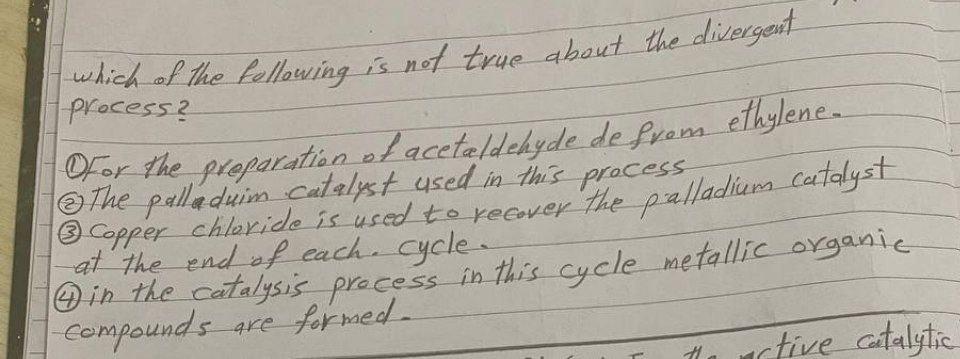 which of the following is not true about the divergent
process?
①For the preparation of acetaldehyde de from ethylene.
②The palladuim catalyst used in this process
③Copper chloride is used to recover the palladium catalyst
at the end of each. cycle.
④in the catalysis process in this cycle metallic organic
compounds are formed.
active catalytic